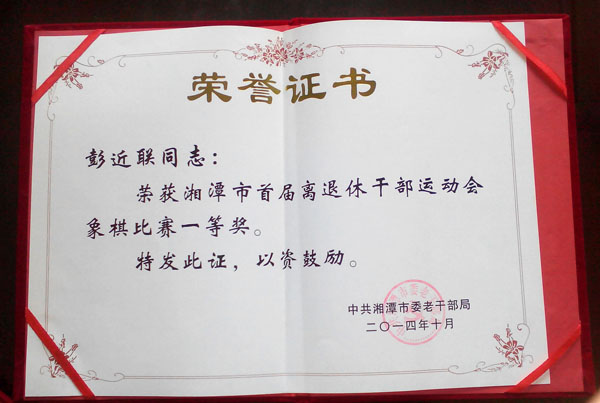 荣誉证书
彭近联同志：
荣获湘潭市首届离退休干部运动会
象棋比赛一等奖。
特发此证，以资鼓励。
中共湘潭市委老干部局
二〇一四年十月